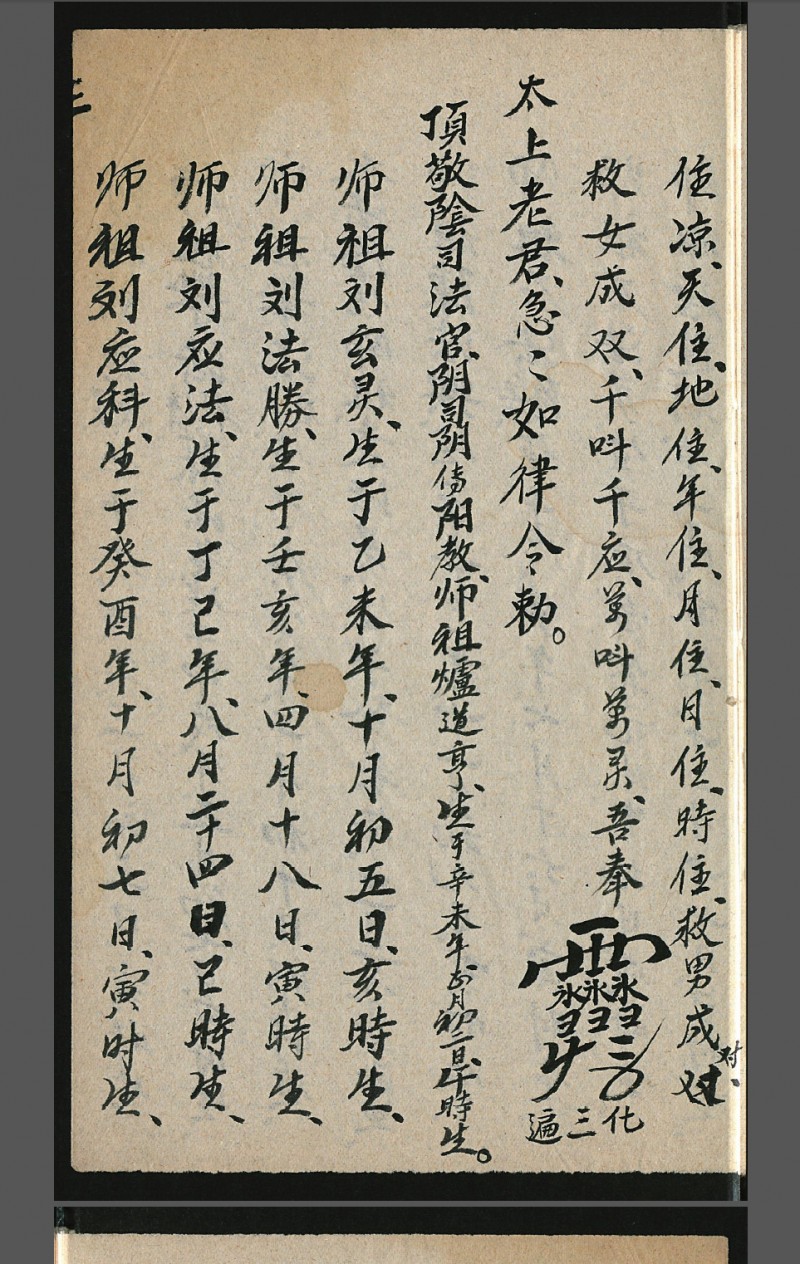 住凉、天住、地住、年住、月住、日住、時住、救男成对、
救女成双、千呌千应、万呌万灵、吾奉
化三遍
太上老君、急〻如律令勅。
頂敬陰司法官、阴司阴传阳教、师祖爐道亨、生于辛未年、正月初二日、午時生。
师祖刘玄灵、生于乙未年、十月初五日、亥時生、
师祖刘法勝、生于壬亥年、四月十八日、寅時生、
师祖刘应法、生于丁己年、八月二十四日、己時生、
师祖刘应科、生于癸酉年、十月初七日、寅时生、